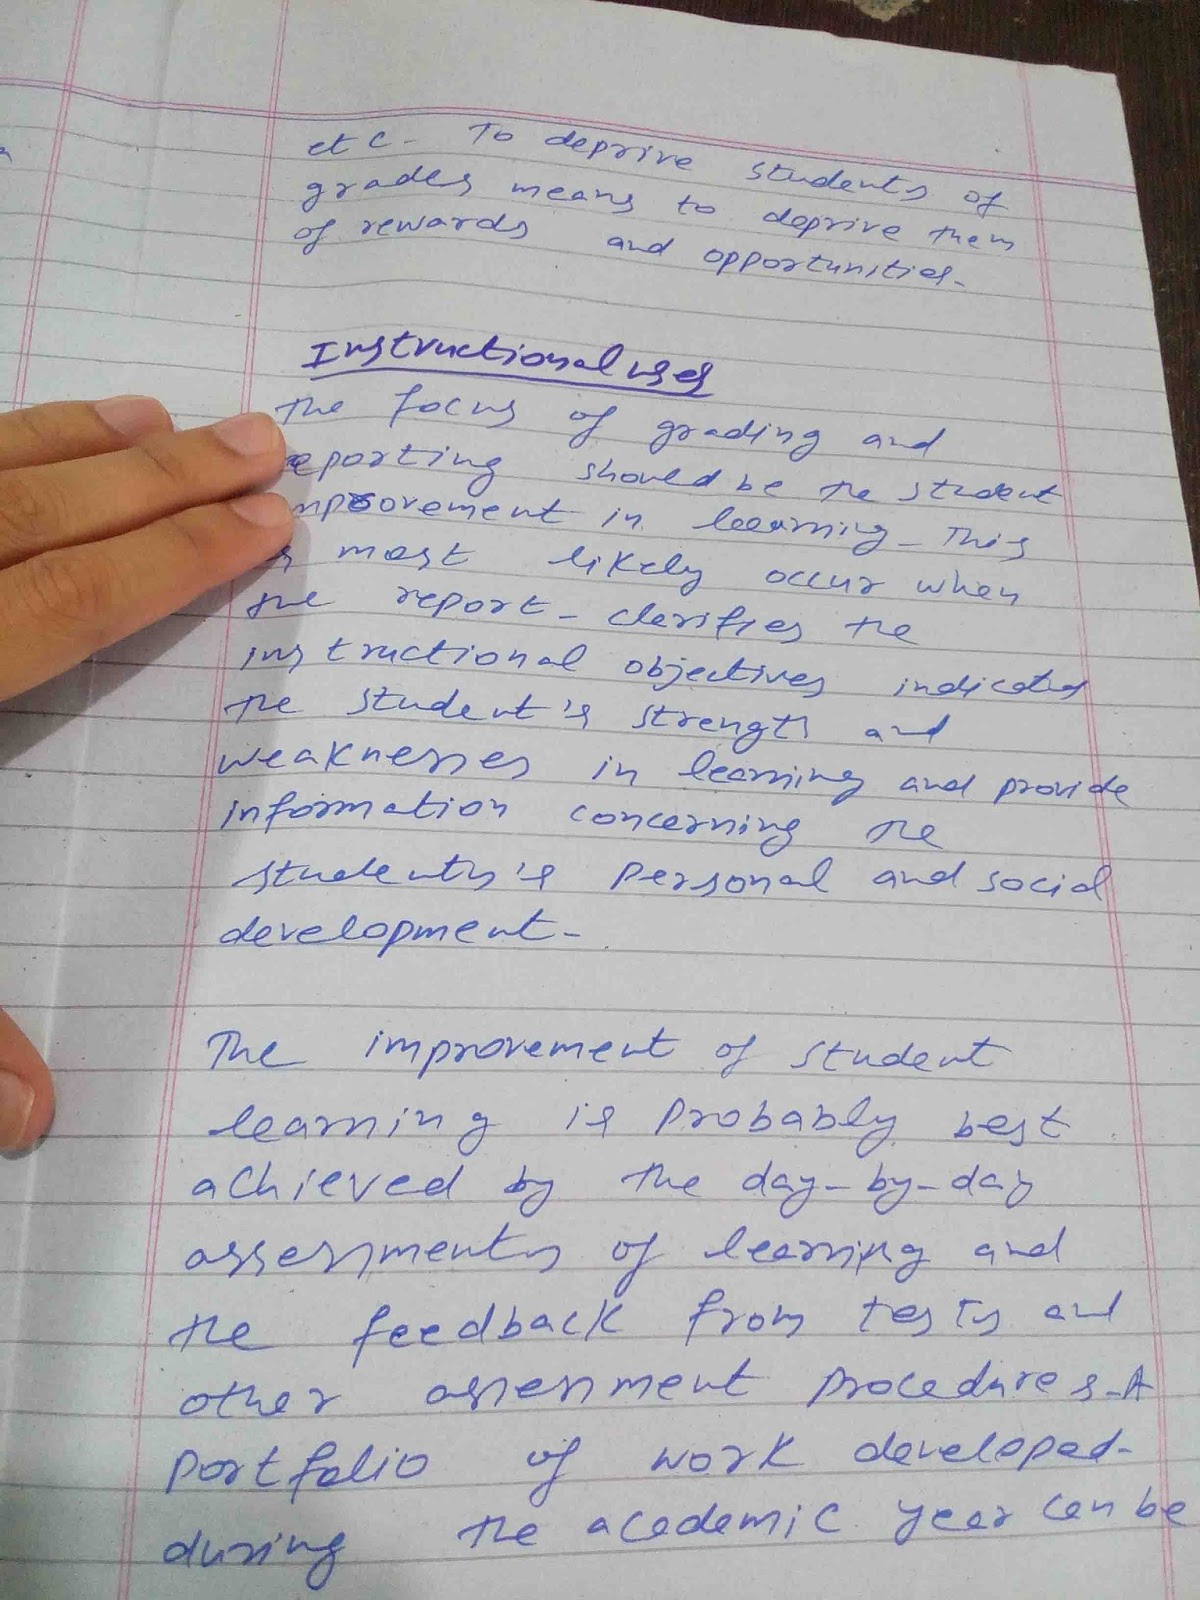 etc. To deprive students of
grades means to deprive them
of rewards and opportunities.
Instructional uses
The focus of grading and
reporting should be the student
improvement in learning. This
is most likely occur when
the report - clarifies the
instructional objectives indicated
the student's strength and
weaknesses in learning and provide
information concerning the
students's personal and social
development.
The improvement of student
learning is probably best
achieved by the day-by-day
assessments of learning and
the feedback from tests and
other assessment procedures. A
portfolio of work developed
during the academic year can be